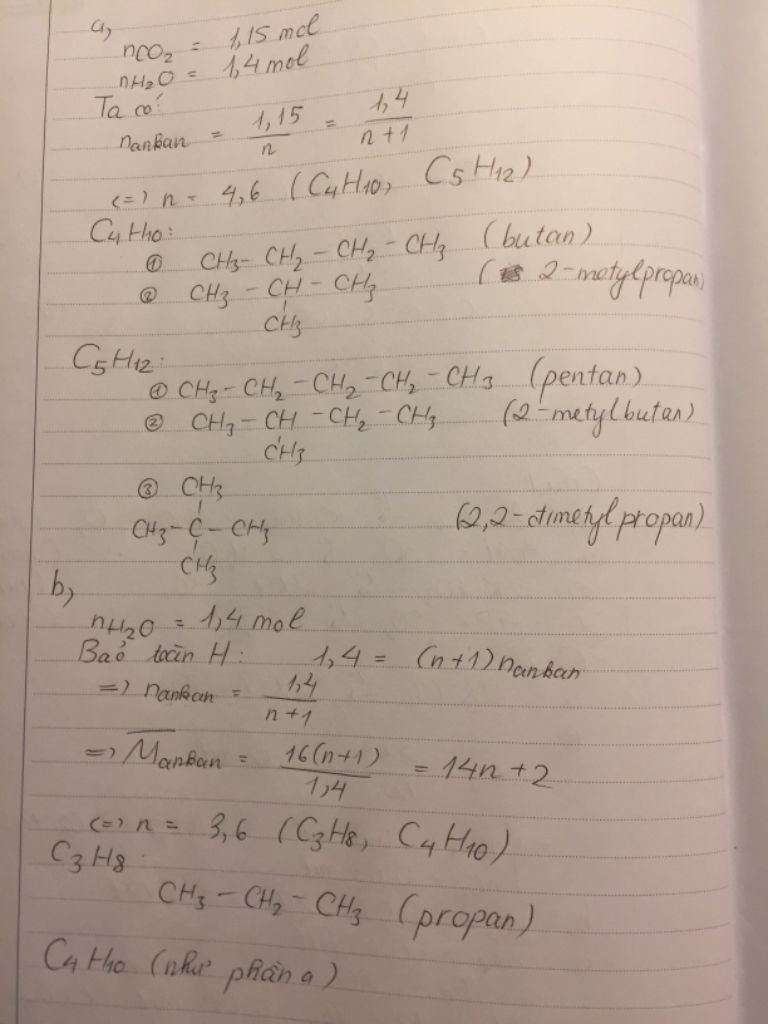 a,
nCO2 = 1,15 mol
nH2O = 1,4 mol
Ta có:
nankan = 1,15/n = 1,4/n+1
<=> n = 4,6 (C4H10, C5H12)
C4H10:
① CH3- CH2 - CH2 - CH3 (butan)
② CH3 - CH - CH3 (2-metylpropan)
CH3
C5H12:
① CH3 - CH2 - CH2 - CH2 - CH3 (pentan)
② CH3 - CH - CH2 - CH3 (2-metylbutan)
CH3
③ CH3
CH3 - C - CH3 (2,2-đimetylpropan)
CH3
b,
nH2O = 1,4 mol
Bảo toàn H: 1,4 = (n+1)nankan
=> nankan = 1,4/n+1
=> Mankan = 16(n+1)/1,4 = 14n + 2
<=> n = 3,6 (C3H8, C4H10)
C3H8:
CH3 - CH2 - CH3 (propan)
C4H10 (như phần a)